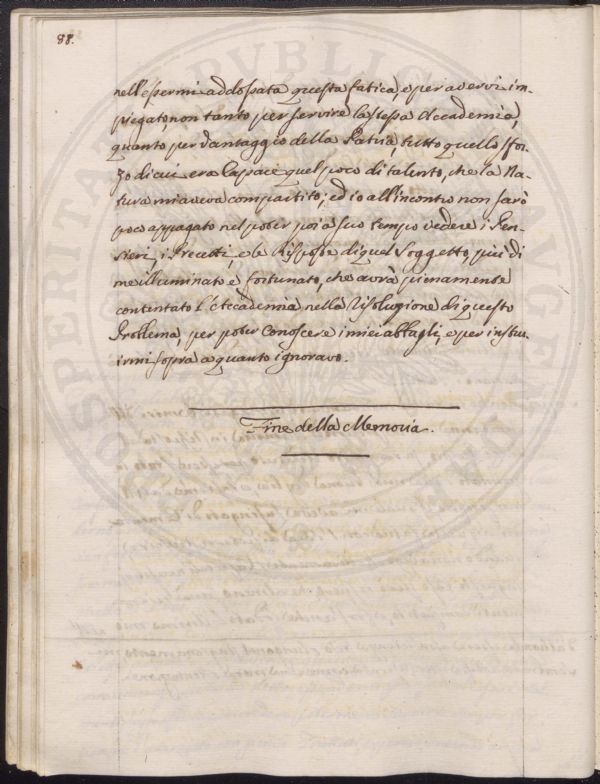 88.
nell'essermi addossata questa fatica, e per avervi im-
piegato, non tanto per servire la stessa Accademia,
quanto per vantaggio della Patria, tutto quello sfor-
zo di cui era capace quel poco di talento, che la Na-
tura mi aveva compartito; ed io all'incontro non sarò
poco appagato nel poter poi a suo tempo vedere i Pen-
sieri, i Precetti, e le Risposte di quel Soggetto più di
me illuminato e fortunato, che avrà pienamente
contentato l'Accademia nella risoluzione di questo
Problema, per poter conoscere i miei abbagli, e per instru-
irmi sopra a quanto ignoravo.
Fine della Memoria.